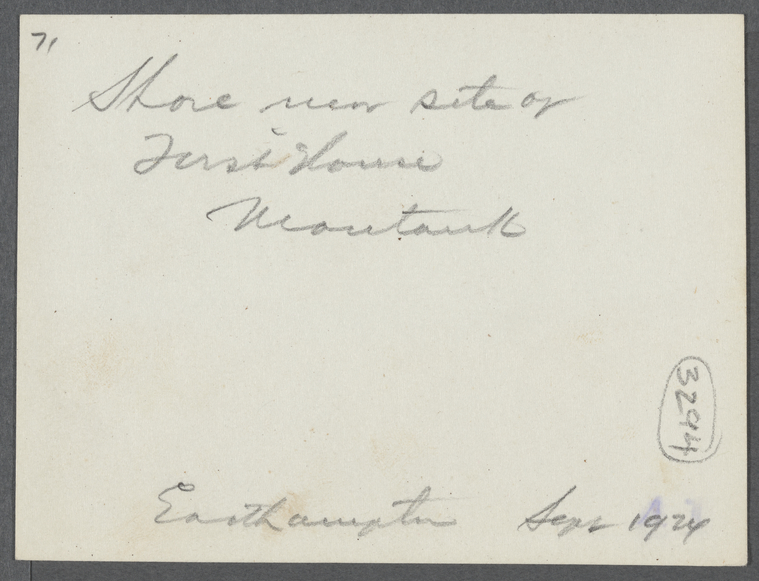 71
Shore near site of
First House
Montauk
3294
Easthampton Sept 1924